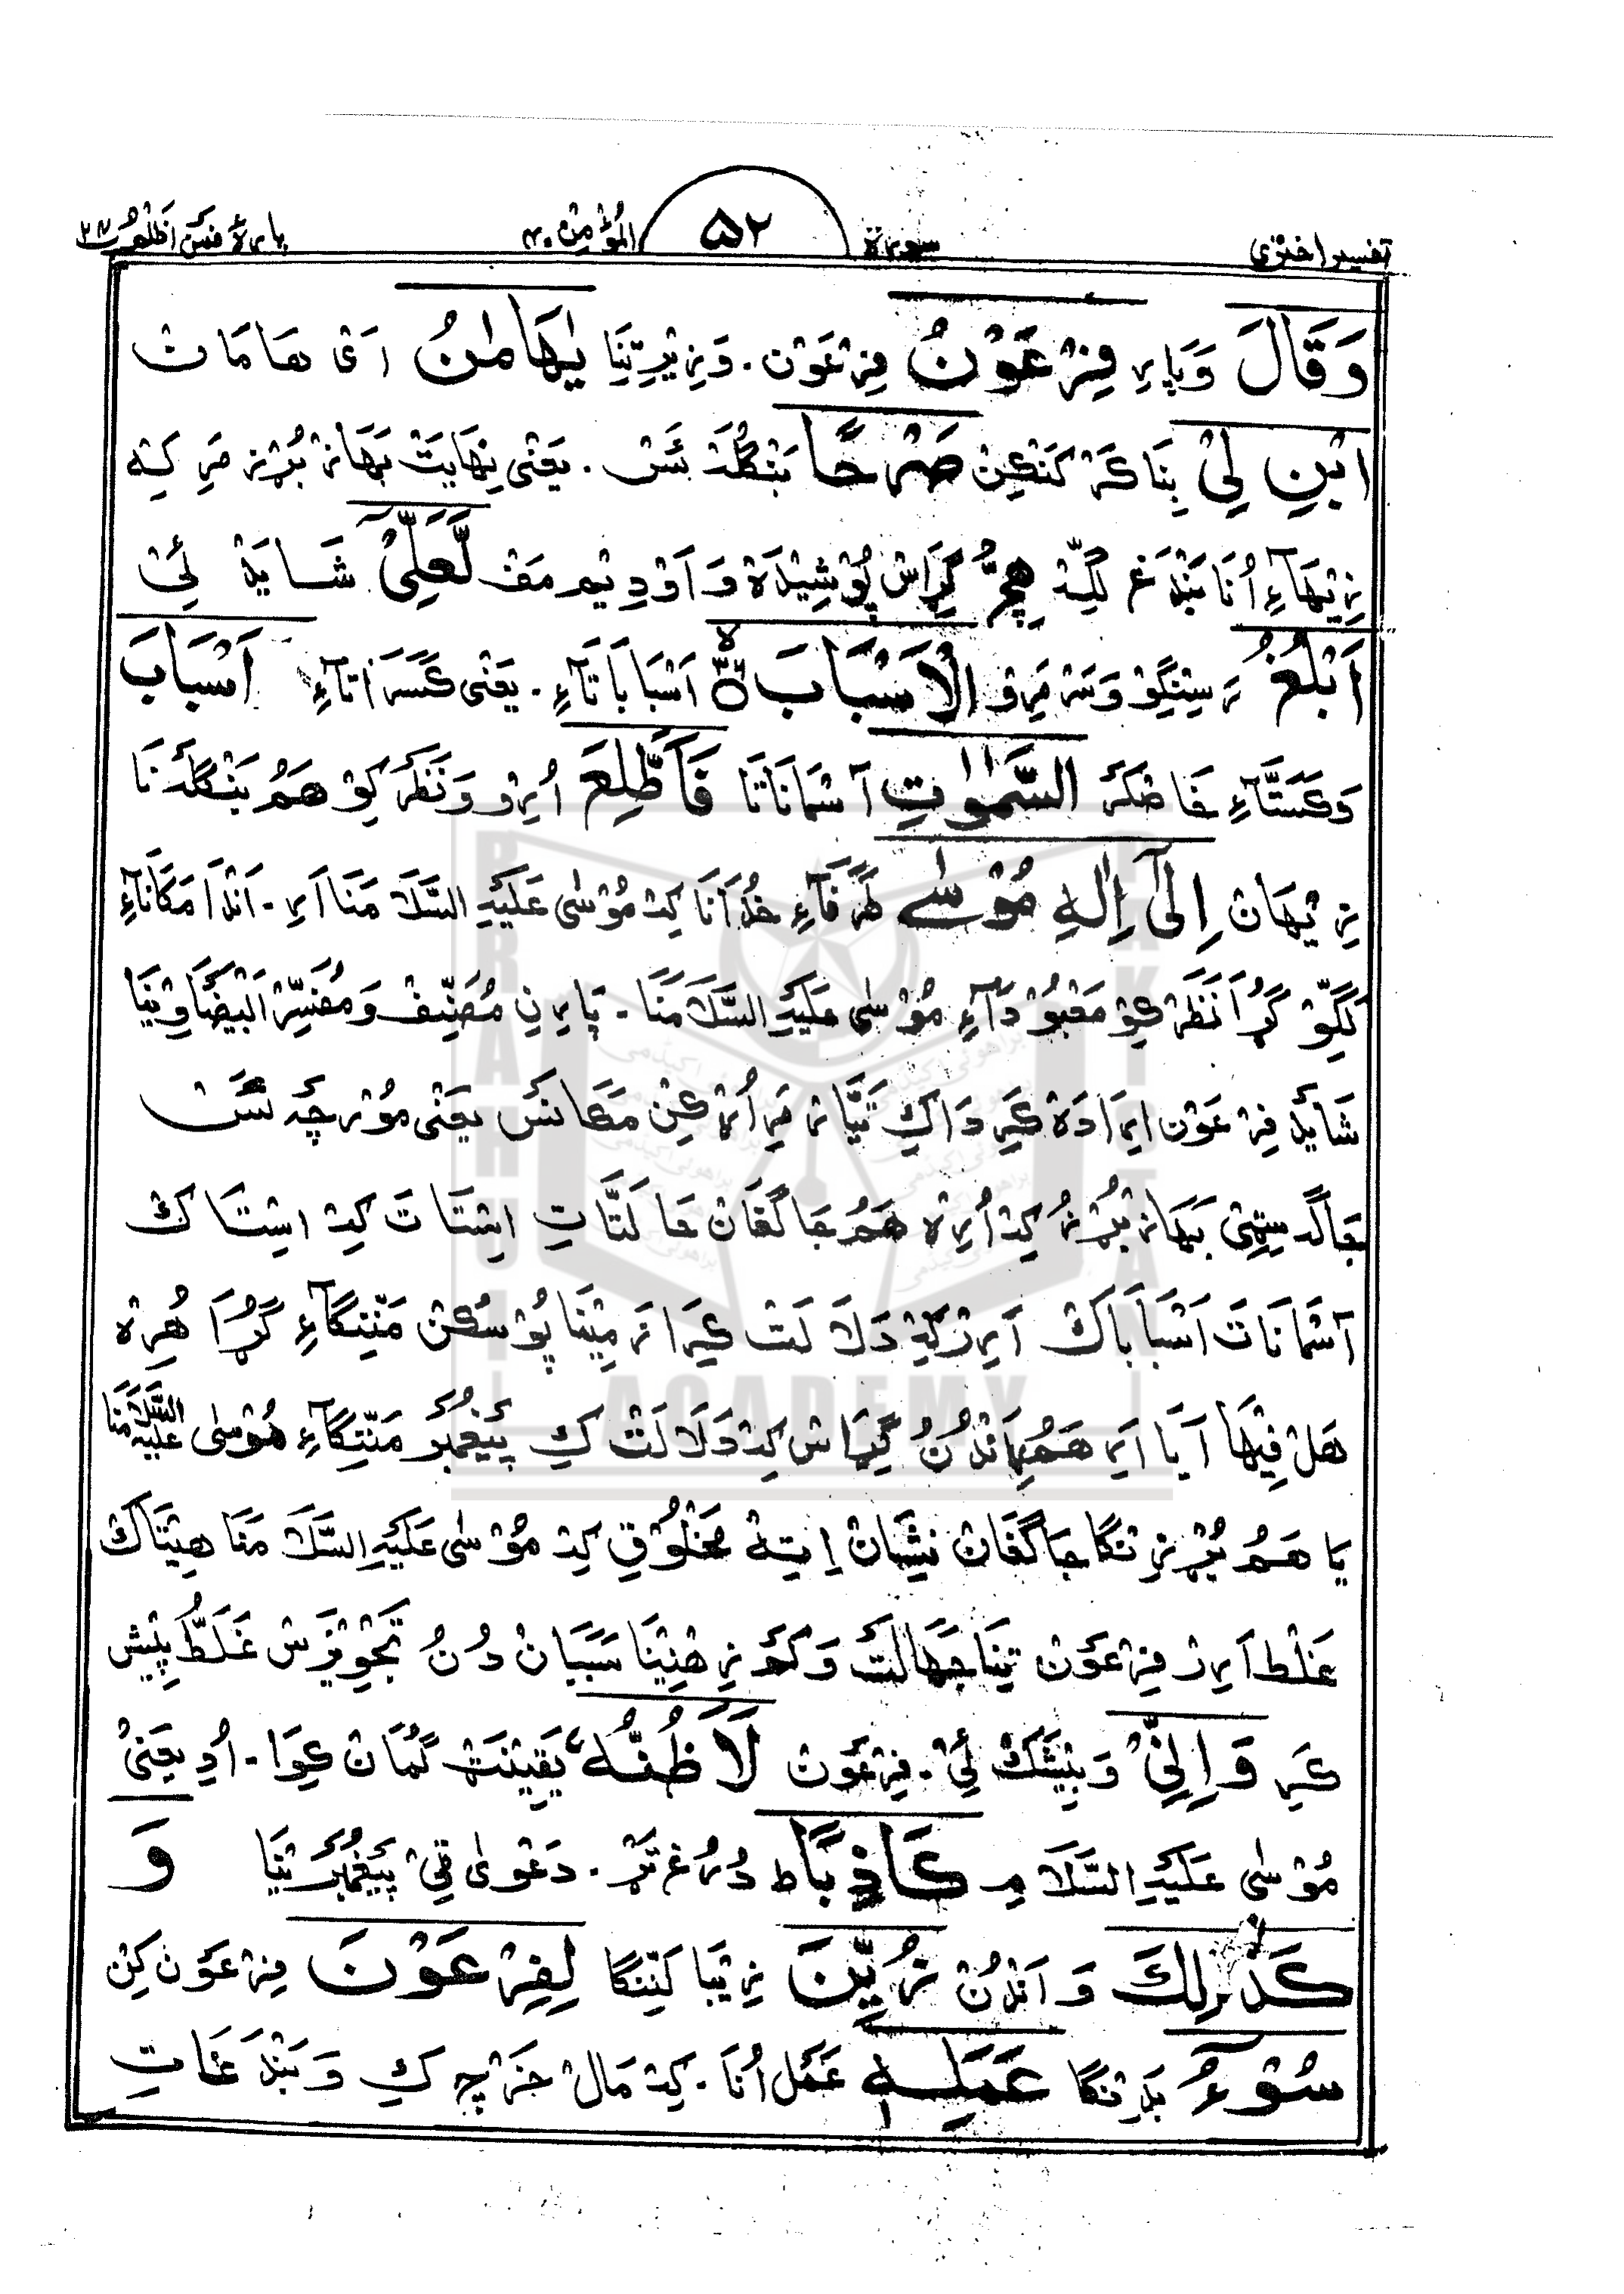 تفسیر اختری سورة ۵۲ المؤمن ۴۰ پارۀ فمن اظلم ۲۴
وَقَالَ وَپارِ فِرْعَوْنُ فِرْعَوْن . وَزِیْرِتِنَا یٰهَامٰنُ اَیْ هَامَانْ
ابْنِ لِیْ بِنَا کَرْ کَنْکِنْ صَرْحًا بَنْگُلَہ ئَسْ . یَعْنِی نِهَایَتْ بَهَازْ بُرْز مَرِ کِہ
زِیْهَاءِ اُنَا بَنْدَغ لَگِہ هِچّ گِرَاسْ پُوْشِیْدَہ وَ اَوْدِیْم مَفْ لَّعَلِّیْ شَایَدْ اِیْ
اَبْلُغُ رَسِنْگِوْ وَسَرْ مَرِوْ الْاَسْبَابَ اَسْبَابَاتَآءِ . یَعْنِی کَسَرَاتَآءِ اَسْبَابَ
وَکَسَتَّآءِ خَاصْکَر السَّمٰوٰتِ آسْمَانَاتَا فَاَطَّلِعَ اُرِوْ وَنَظَر کِوْ هَمُ بَنْگُلَہ نَا
زِیْهَانْ اِلٰٓی اِلٰهِ مُوْسٰی طَرَفَآءِ خُدَانَا کِہ مُوْسٰی عَلَیْہِ السَّلَامَنَا اَرِ . اَنْدَا مَکَانَاءِ
لَگِوْ گُڑَا نَظَرْ کِوْ مَعْبُوْدَآءِ مُوْسٰی عَلَیْہِ السَّلَامَنَا . پَارِنِ مُصَنِّفْ وَمُفَسِّرْ اَلْبَیْضَاوِیْنَا
شَایَدْ فِرْعَوْن اِرَادَہ کَرِ دَاکِ تَیَّارْ مَرِ اُرْکِنْ مَکَانَس یَعْنِی مُوْرچَہ ئَسْ
جَاگَہ سِیْٹِی بَهَازْ بُرْز کِہ اُرِہ هَمُ جَاگَغَانْ حَالَتَّاتِ اِسْتَاتَ کِہ اِسْتَاکْ
آسْمَانَاتَ اَسْبَابَاکْ اَرِرْ کِہ دَلَالَتْ کِرَا زَمِیْنَا پُوْسْکُنْ مَنِّنْگَآءِ گُڑَا هُرِہ
هَلْ فِیْهَا آیَا اَرِ هَمُ اَنْدُنْ گِرَاسْ کِہ دَلَالَتْ کِ پَیْغَمْبَرْ مَنِّنْگَآءِ مُوْسٰی عَلَیْہِ السَّلَامَنَا
یَا هَمُ بُرْزِنْگَا جَاگَغَانْ نِشَانْ اِتِہْ مَخْلُوْقِ کِہ مُوْسٰی عَلَیْہِ السَّلَامَنَا هِیْتَاکْ
غَلْط اَرِرْ فِرْعَوْن تِنَا جَهَالَتْ وَکَمْ ذِهْنِیْنَا سَبَبَانْ دُنْ تَجْوِیْزَسْ غَلَطْ پِیْش
کَرِ وَاِنِّیْ وَبِیْشَکْ اِیْ . فِرْعَوْن لَاَظُنُّهٗ یَقِیْنَتْ گُمَانْ کِوَا . اُدِ یَعْنِیْ
مُوْسٰی عَلَیْہِ السَّلَامِ کَاذِبًا ط دُرُغ تَڑْ . دَعْوٰی ٹِیْ پَیْغَمْبَرِیْنَا وَ
کَذٰلِکَ وَ اَنْدُنْ زُیِّنَ زِیْبَا کَنِّنْگَا لِفِرْعَوْنَ فِرْعَوْن کِنْ
سُوْٓءُ بَدِنْگَا عَمَلِهٖ عَمَل اُنَا . کِہ مَالْ خَرْچ کِ وَبَنْدَغَاتِ